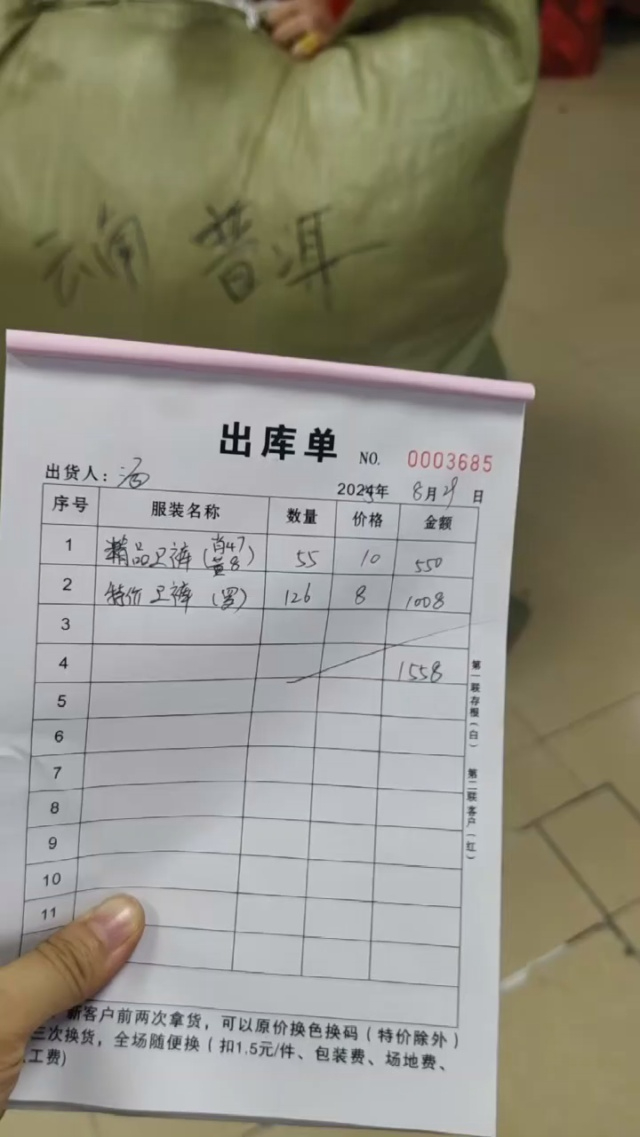 云南 普洱
出库单 NO. 0003685
出货人：汤 2024年 8月29日
序号 服装名称 数量 价格 金额
1 精品卫裤（肖47 黄8） 55 10 550
2 特价卫裤（罗） 126 8 1008
3
4 1558
5
6
7
8
9
10
11
第一联存根（白）
第二联客户（红）
新客户前两次拿货，可以原价换色换码（特价除外）
三次换货，全场随便换（扣1.5元/件、包装费、场地费、
工费)